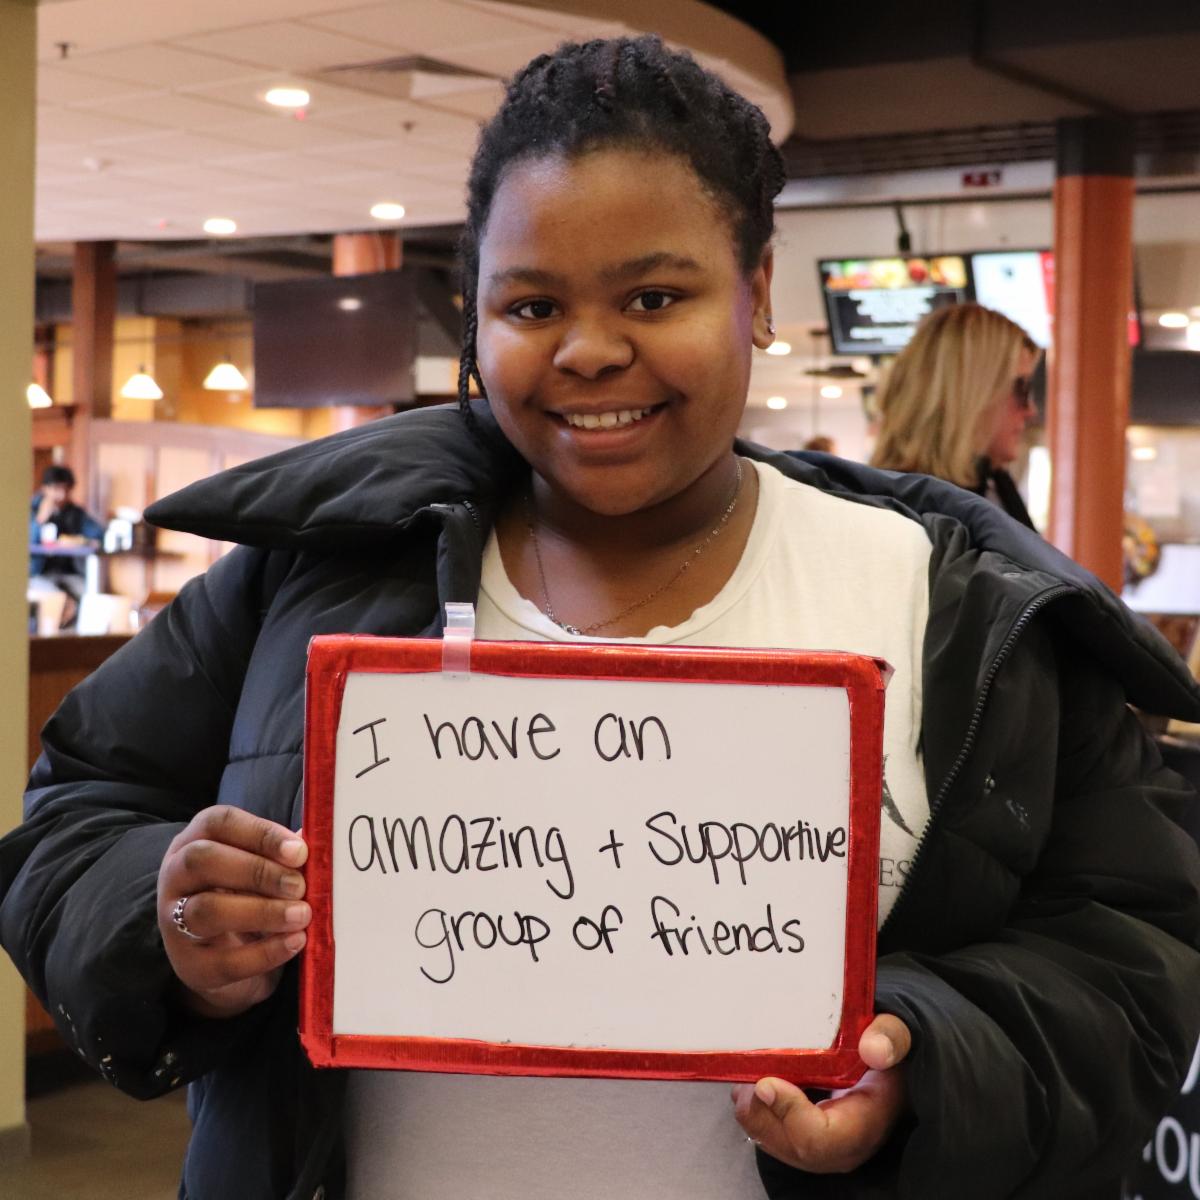 I have an
amazing + supportive
group of friends
ES
OU